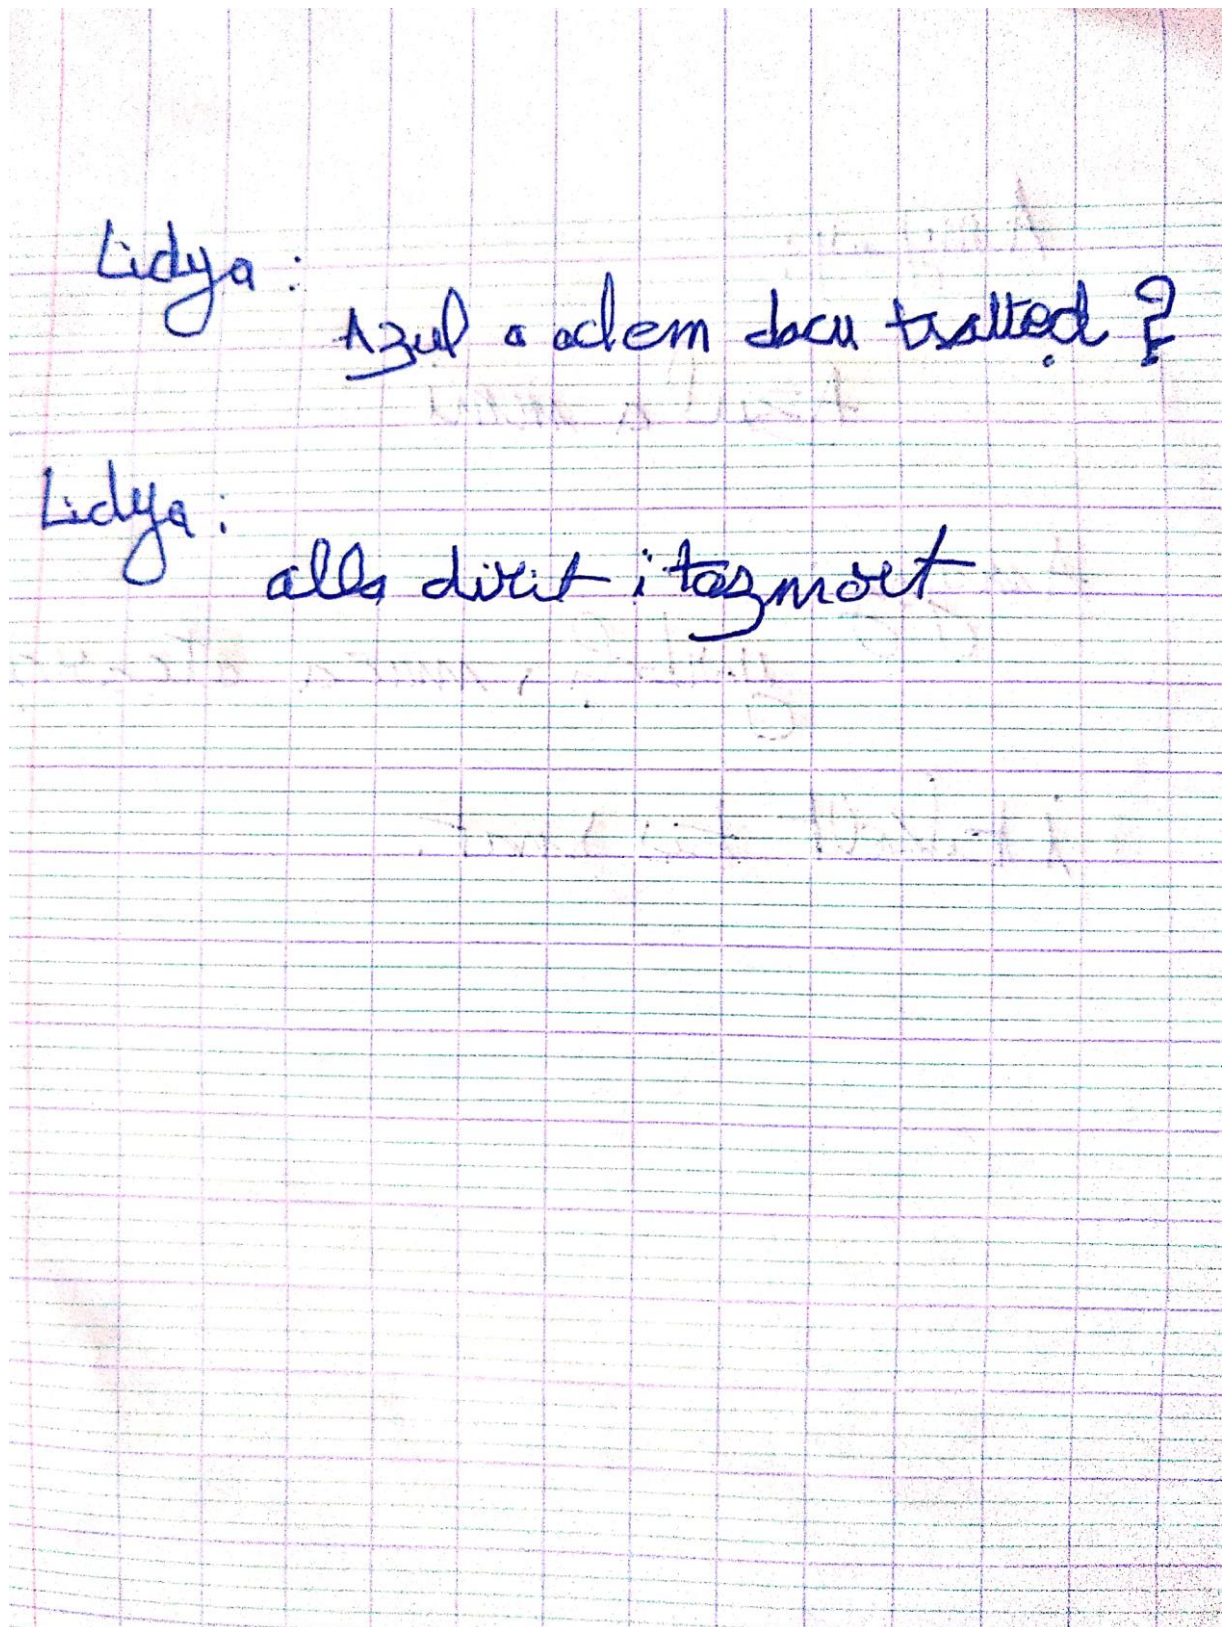 Lidya :
Azul a adem dacu tsalteḍ ?
Lidya :
alla dirit i tazmert